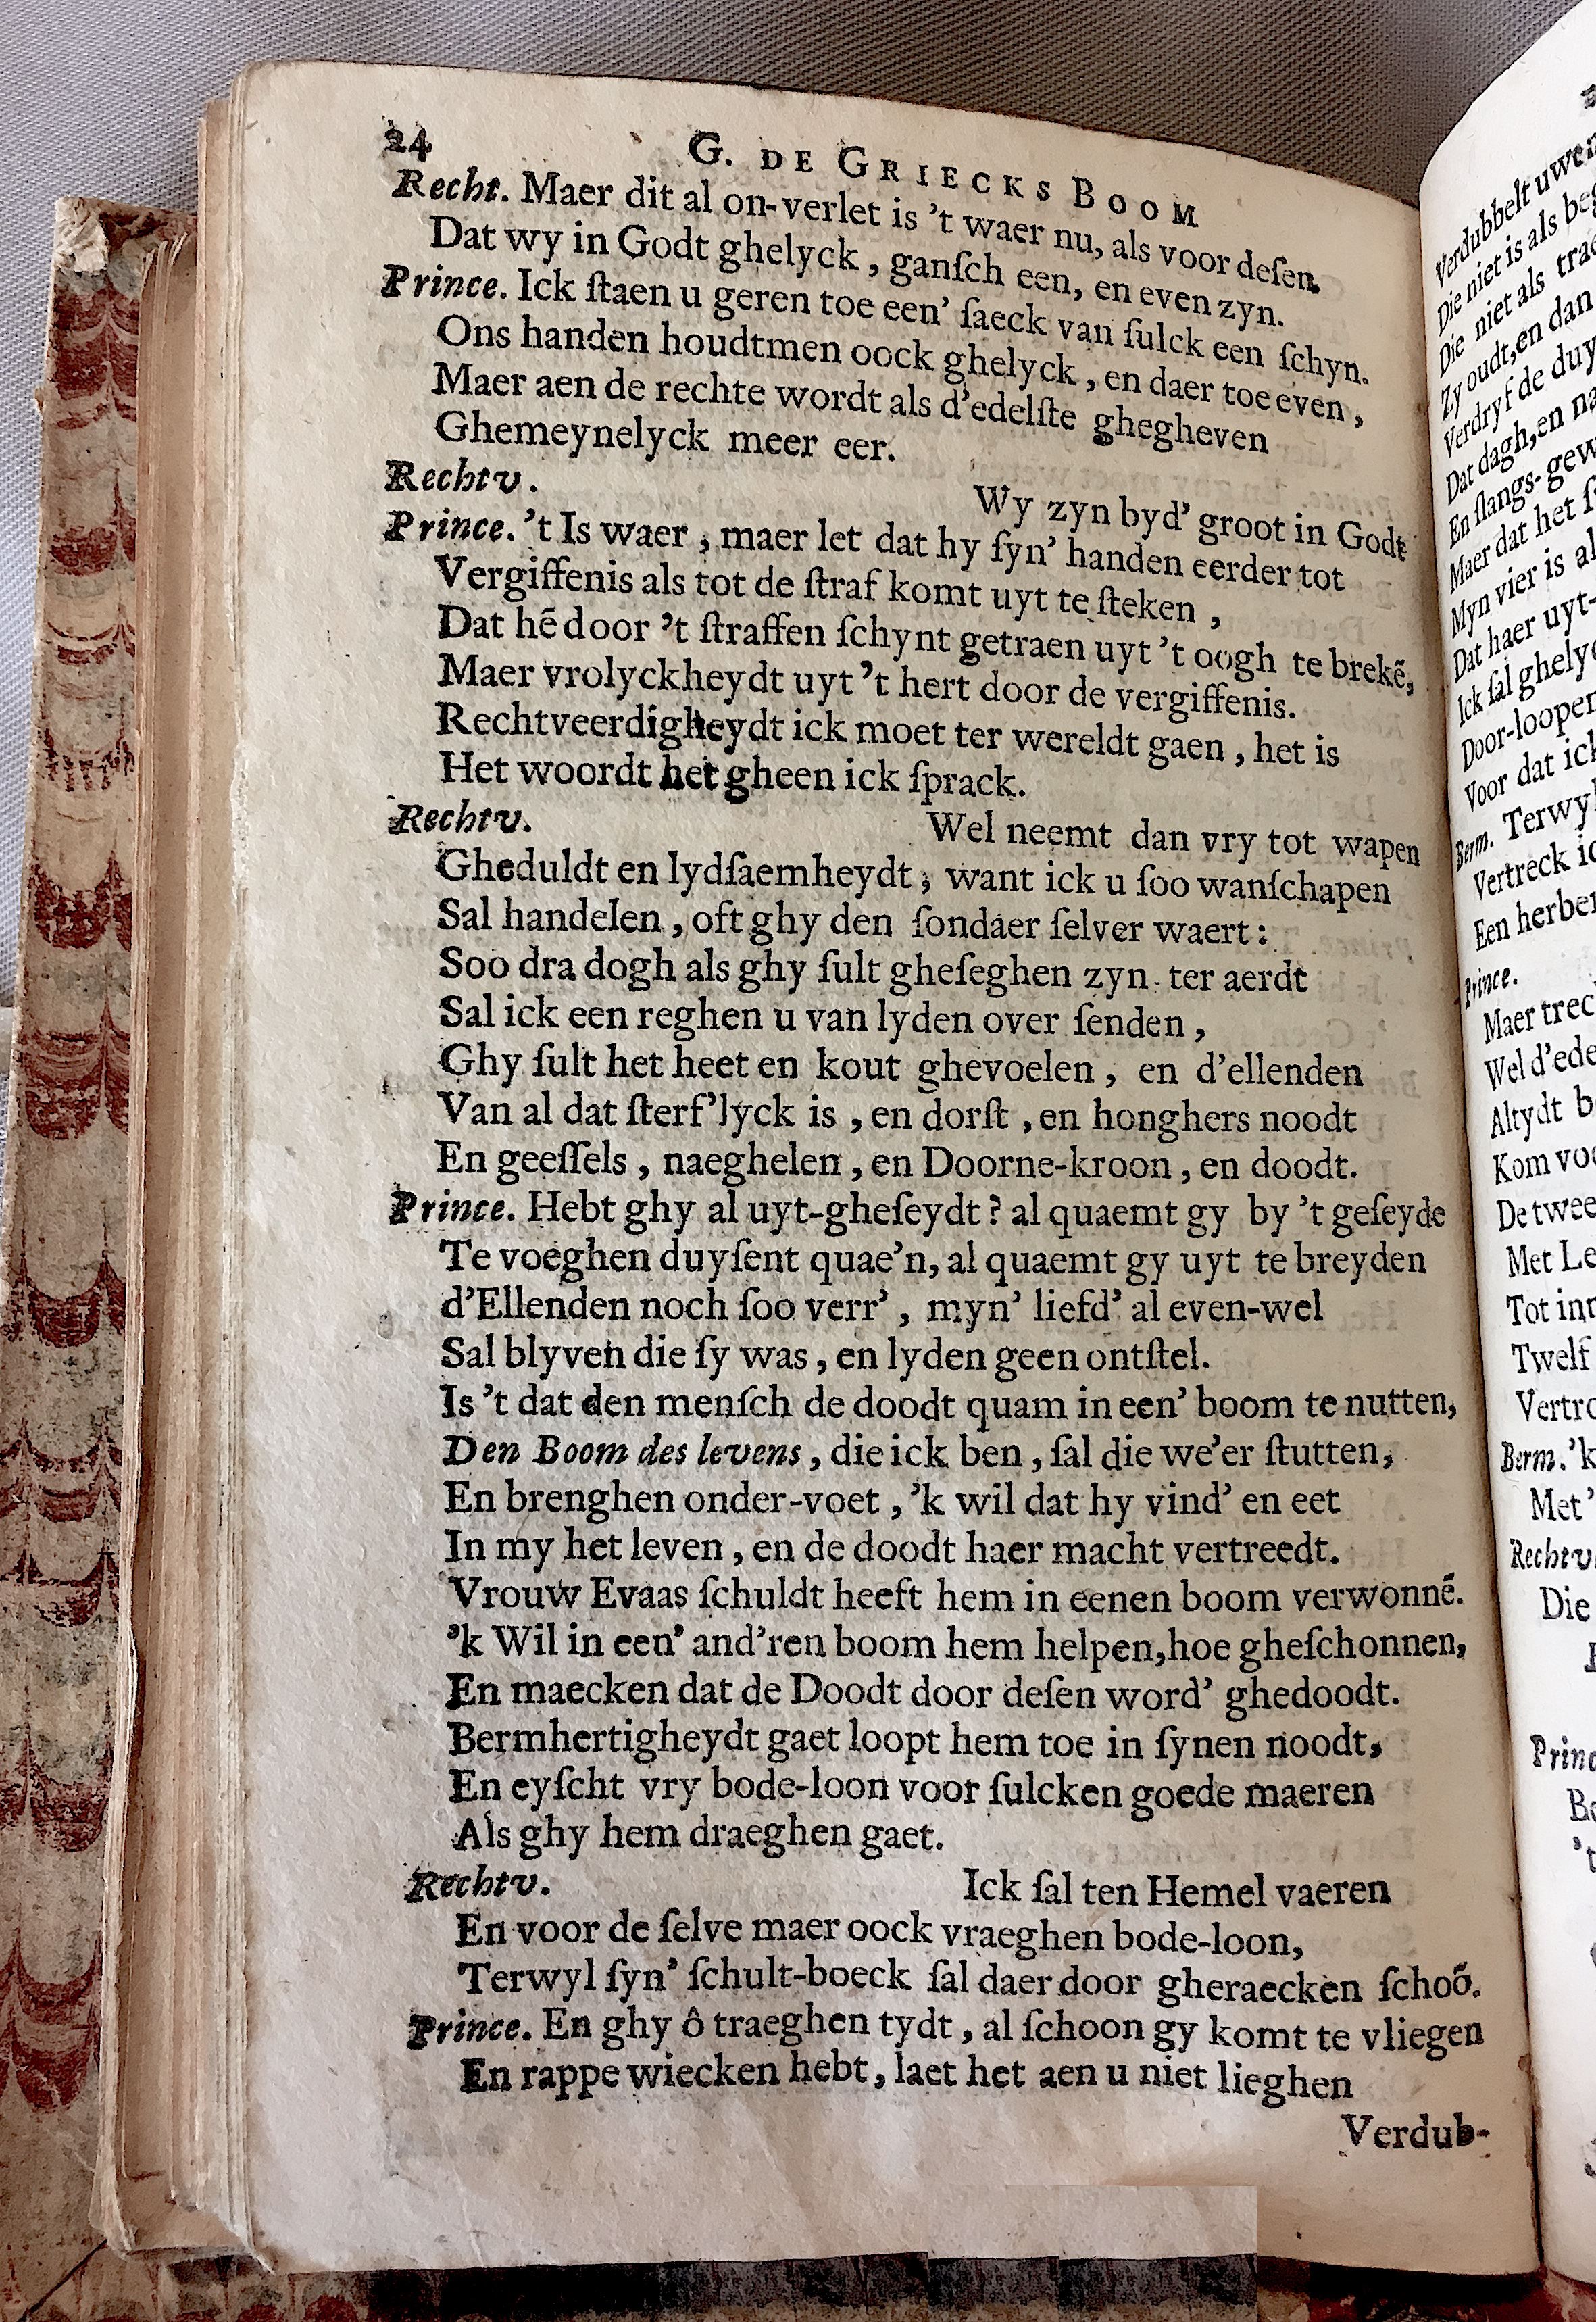 24 G. DE GRIECKS BOOM
Recht. Maer dit al on-verlet is 't waer nu, als voor deſen.
Dat wy in Godt ghelyck, ganſch een, en even zyn.
Prince. Ick ſtaen u geren toe een' ſaeck van ſulck een ſchyn.
Ons handen houdtmen oock ghelyck, en daer toe even,
Maer aen de rechte wordt als d'edelſte ghegheven
Ghemeynelyck meer eer.
Rechtv. Wy zyn byd' groot in Godt
Prince. 't Is waer, maer let dat hy ſyn' handen eerder tot
Vergiffenis als tot de ſtraf komt uyt te ſteken,
Dat hē door 't ſtraffen ſchynt getraen uyt 't oogh te brekē,
Maer vrolyckheydt uyt 't hert door de vergiffenis.
Rechtveerdigheydt ick moet ter wereldt gaen, het is
Het woordt het gheen ick ſprack.
Rechtv. Wel neemt dan vry tot wapen
Gheduldt en lydſaemheydt, want ick u ſoo wanſchapen
Sal handelen, oft ghy den ſondaer ſelver waert:
Soo dra dogh als ghy ſult gheſeghen zyn ter aerdt
Sal ick een reghen u van lyden over ſenden,
Ghy ſult het heet en kout ghevoelen, en d'ellenden
Van al dat ſterf'lyck is, en dorſt, en honghers noodt
En geeſſels, naeghelen, en Doorne-kroon, en doodt.
Prince. Hebt ghy al uyt-gheſeydt? al quaemt gy by 't geſeyde
Te voeghen duyſent quae'n, al quaemt gy uyt te breyden
d'Ellenden noch ſoo verr', myn' liefd' al even-wel
Sal blyven die ſy was, en lyden geen ontſtel.
Is 't dat den menſch de doodt quam in een' boom te nutten,
Den Boom des levens, die ick ben, ſal die we'er ſtutten,
En brenghen onder-voet, 'k wil dat hy vind' en eet
In my het leven, en de doodt haer macht vertreedt.
Vrouw Evaas ſchuldt heeft hem in eenen boom verwonnē.
'k Wil in een' and'ren boom hem helpen, hoe gheſchonnen,
En maecken dat de Doodt door deſen word' ghedoodt.
Bermhertigheydt gaet loopt hem toe in ſynen noodt,
En eyſcht vry bode-loon voor ſulcken goede maeren
Als ghy hem draeghen gaet.
Rechtv. Ick ſal ten Hemel vaeren
En voor de ſelve maer oock vraeghen bode-loon,
Terwyl ſyn' ſchult-boeck ſal daer door gheraecken ſchoō.
Prince. En ghy ô traeghen tydt, al ſchoon gy komt te vliegen
En rappe wiecken hebt, laet het aen u niet lieghen
Verdub-
Verdubbelt uwen
Die niet is als
Die niet als
Zy oudt, en dan
Verdryf de
Dat dagh, en
En ſlangs-
Maer dat het
Myn vier is
Dat haer uyt-
Ick ſal
Door-loopen
Voor dat ick
Berm. Terwyl
Vertreck
Een
Prince.
Maer
Wel
Altydt
Kom
De twee
Met
Tot
Twelf
Berm. 'k
Met'
Rechtv.
Die